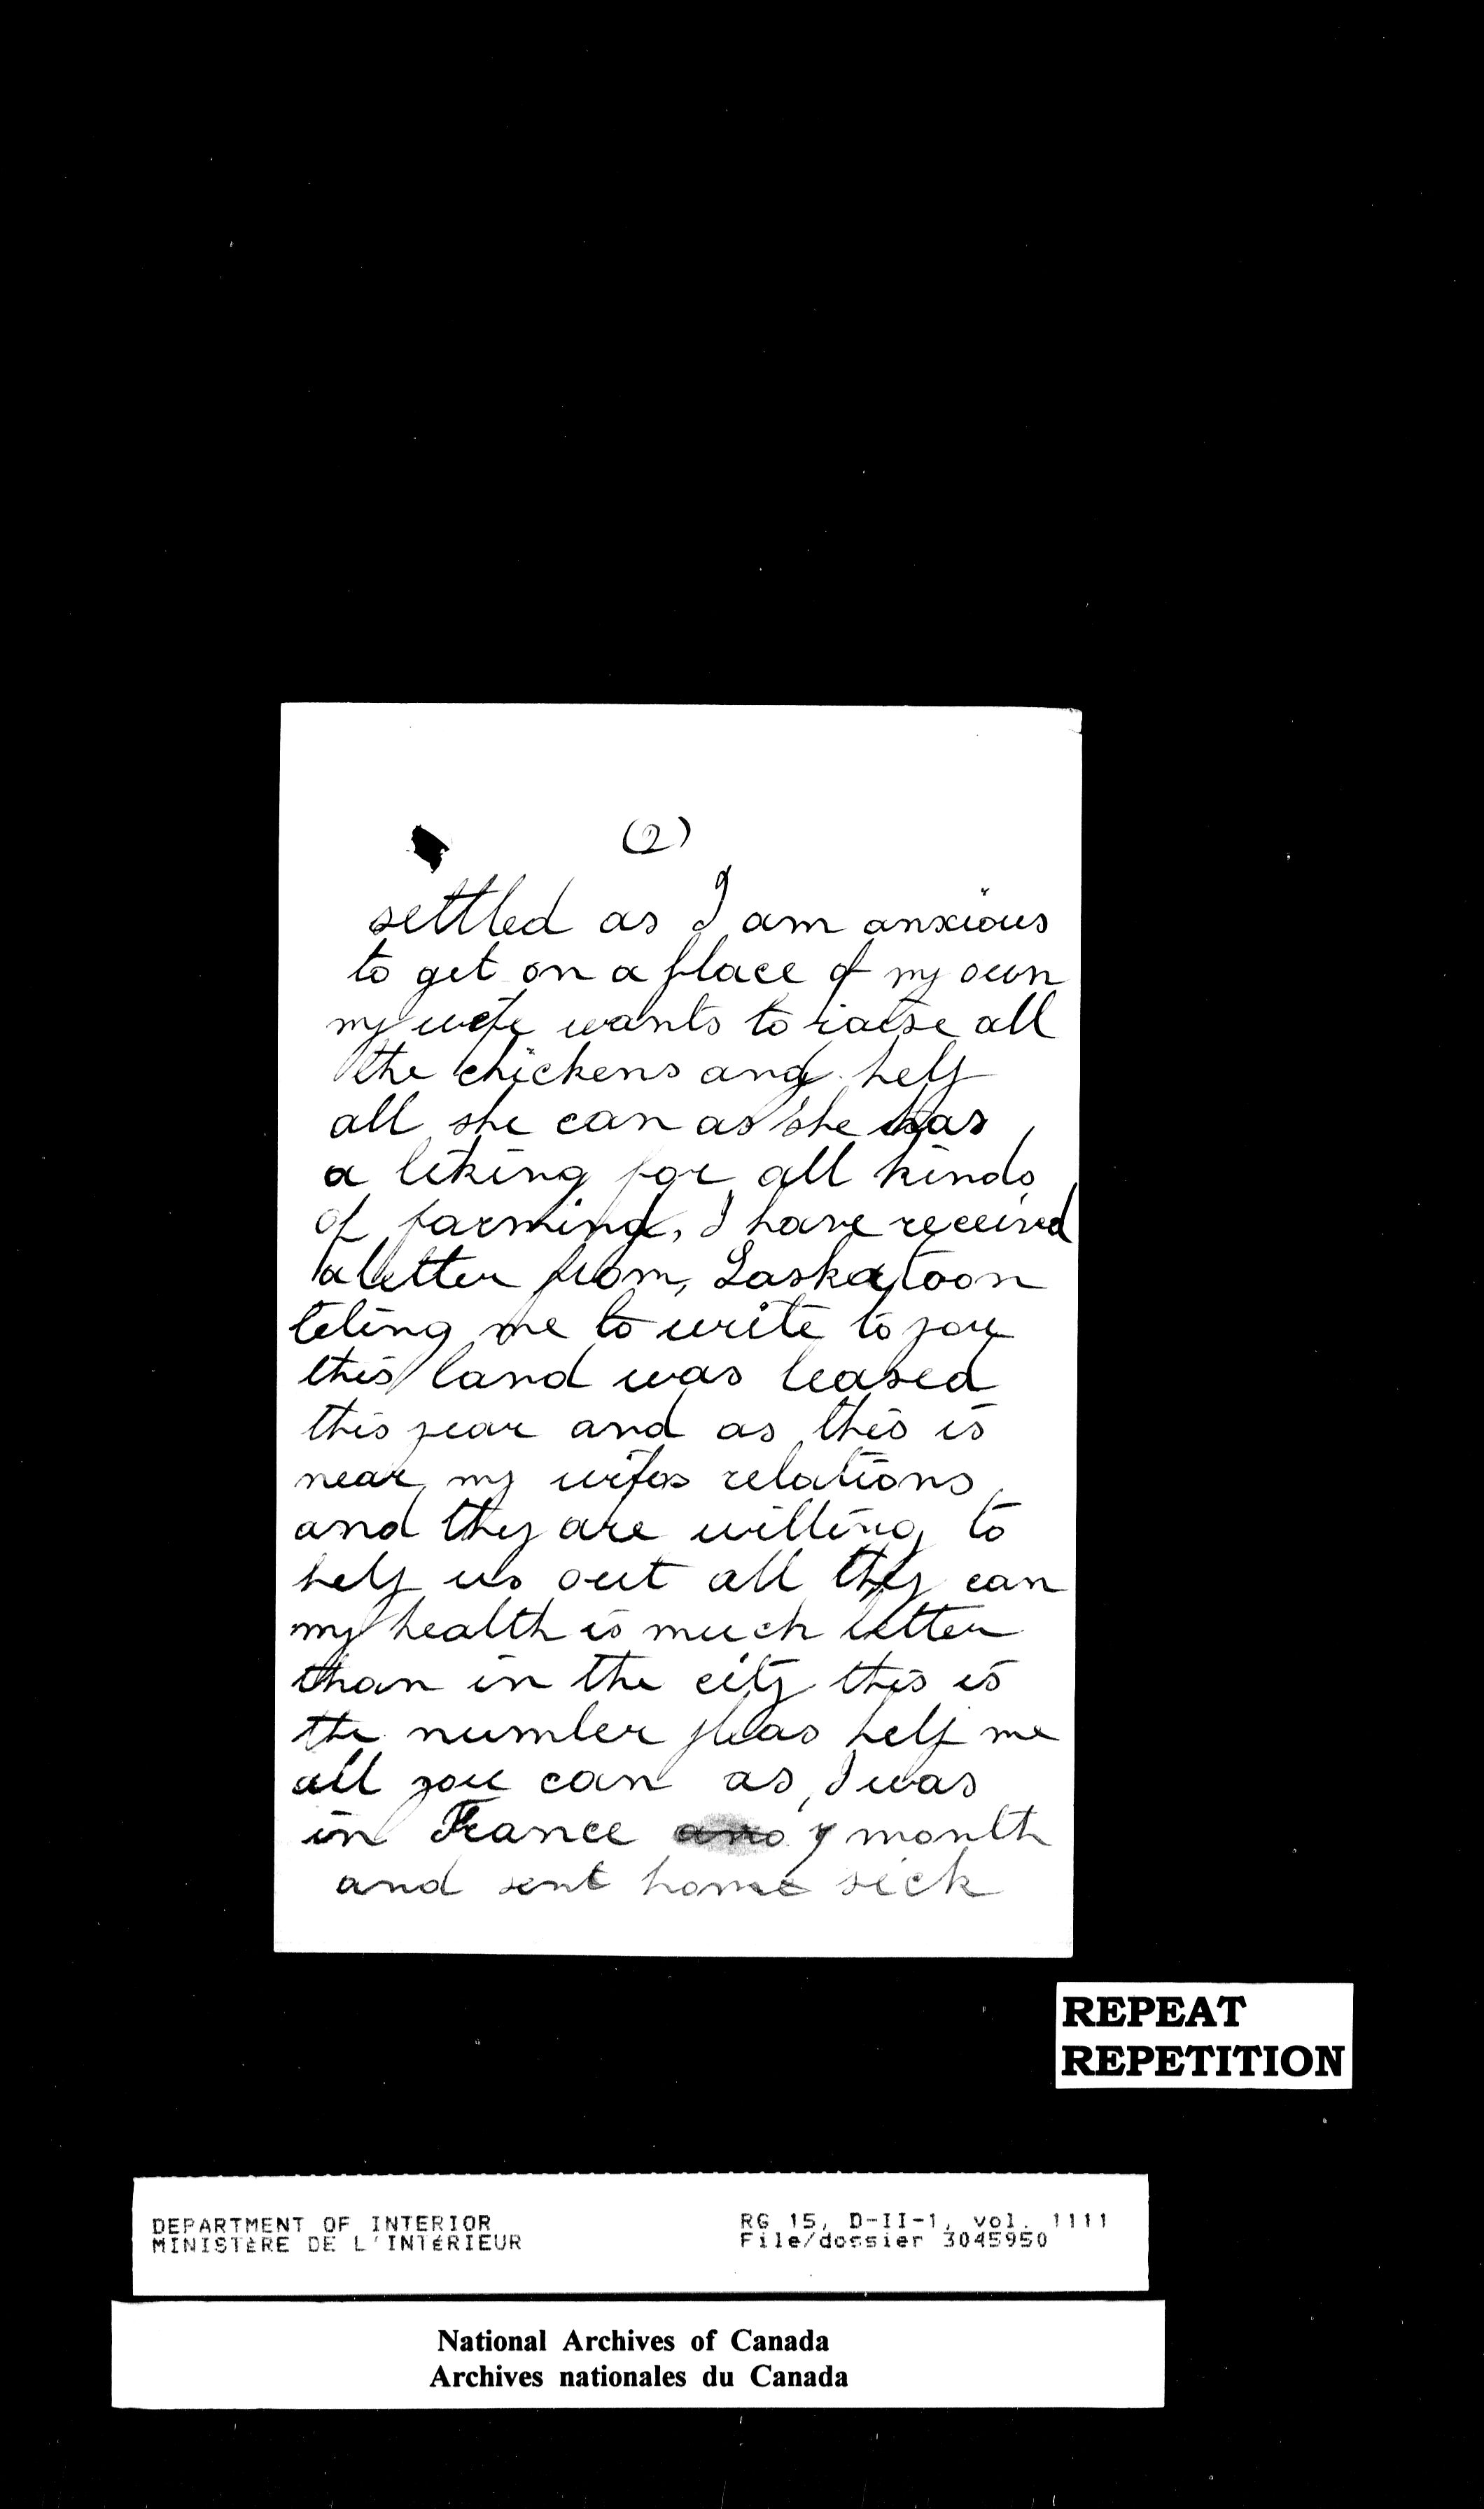 (2)
settled as I am anxious
to get on a place of my own
my wife wants to raise all
the chickens and help
all she can as she has
a liking for all kinds
of farming, I have received
a letter from, Saskatoon
teling me to write to you
this land was leased
this year and as this is
near my wifes relations
and they are willing to
help us out all they can
my health is much better
than in the city this is
the number pleas help me
all you can as, I was
in France and 7 month
and sent home sick
REPEAT
REPETITION
DEPARTMENT OF INTERIOR RG 15, D-II-1, vol. 1111
MINISTÈRE DE L'INTÉRIEUR File/dossier 3045950
National Archives of Canada
Archives nationales du Canada